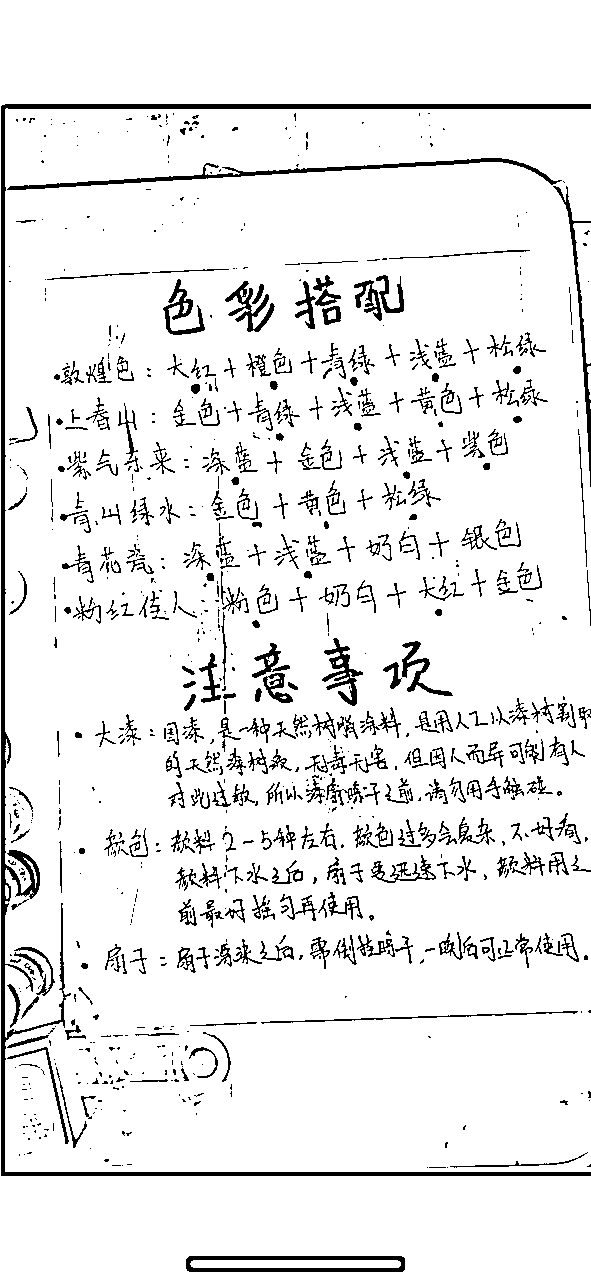 色彩搭配
·敦煌色：大红+橙色+青绿+浅蓝+松绿
·上春山：金色+青绿+浅蓝+黄色+松绿
·紫气东来：深蓝+金色+浅蓝+紫色
·青山绿水：金色+黄色+松绿
·青花瓷：深蓝+浅蓝+奶白+银色
·粉红佳人：粉色+奶白+大红+金色
注意事项
·大漆：国漆，是一种天然树脂涂料，是用人工从漆树割取
的天然漆树液，无毒无害，但因人而异可能有人
对此过敏，所以漆扇晾干之前，请勿用手触碰。
·颜色：颜料2-5种左右，颜色过多会复杂，不好看，
颜料下水之后，扇子要迅速下水，颜料用之
前最好摇匀再使用。
·扇子：扇子漂染之后，需倒挂晾干，一晚后可正常使用。